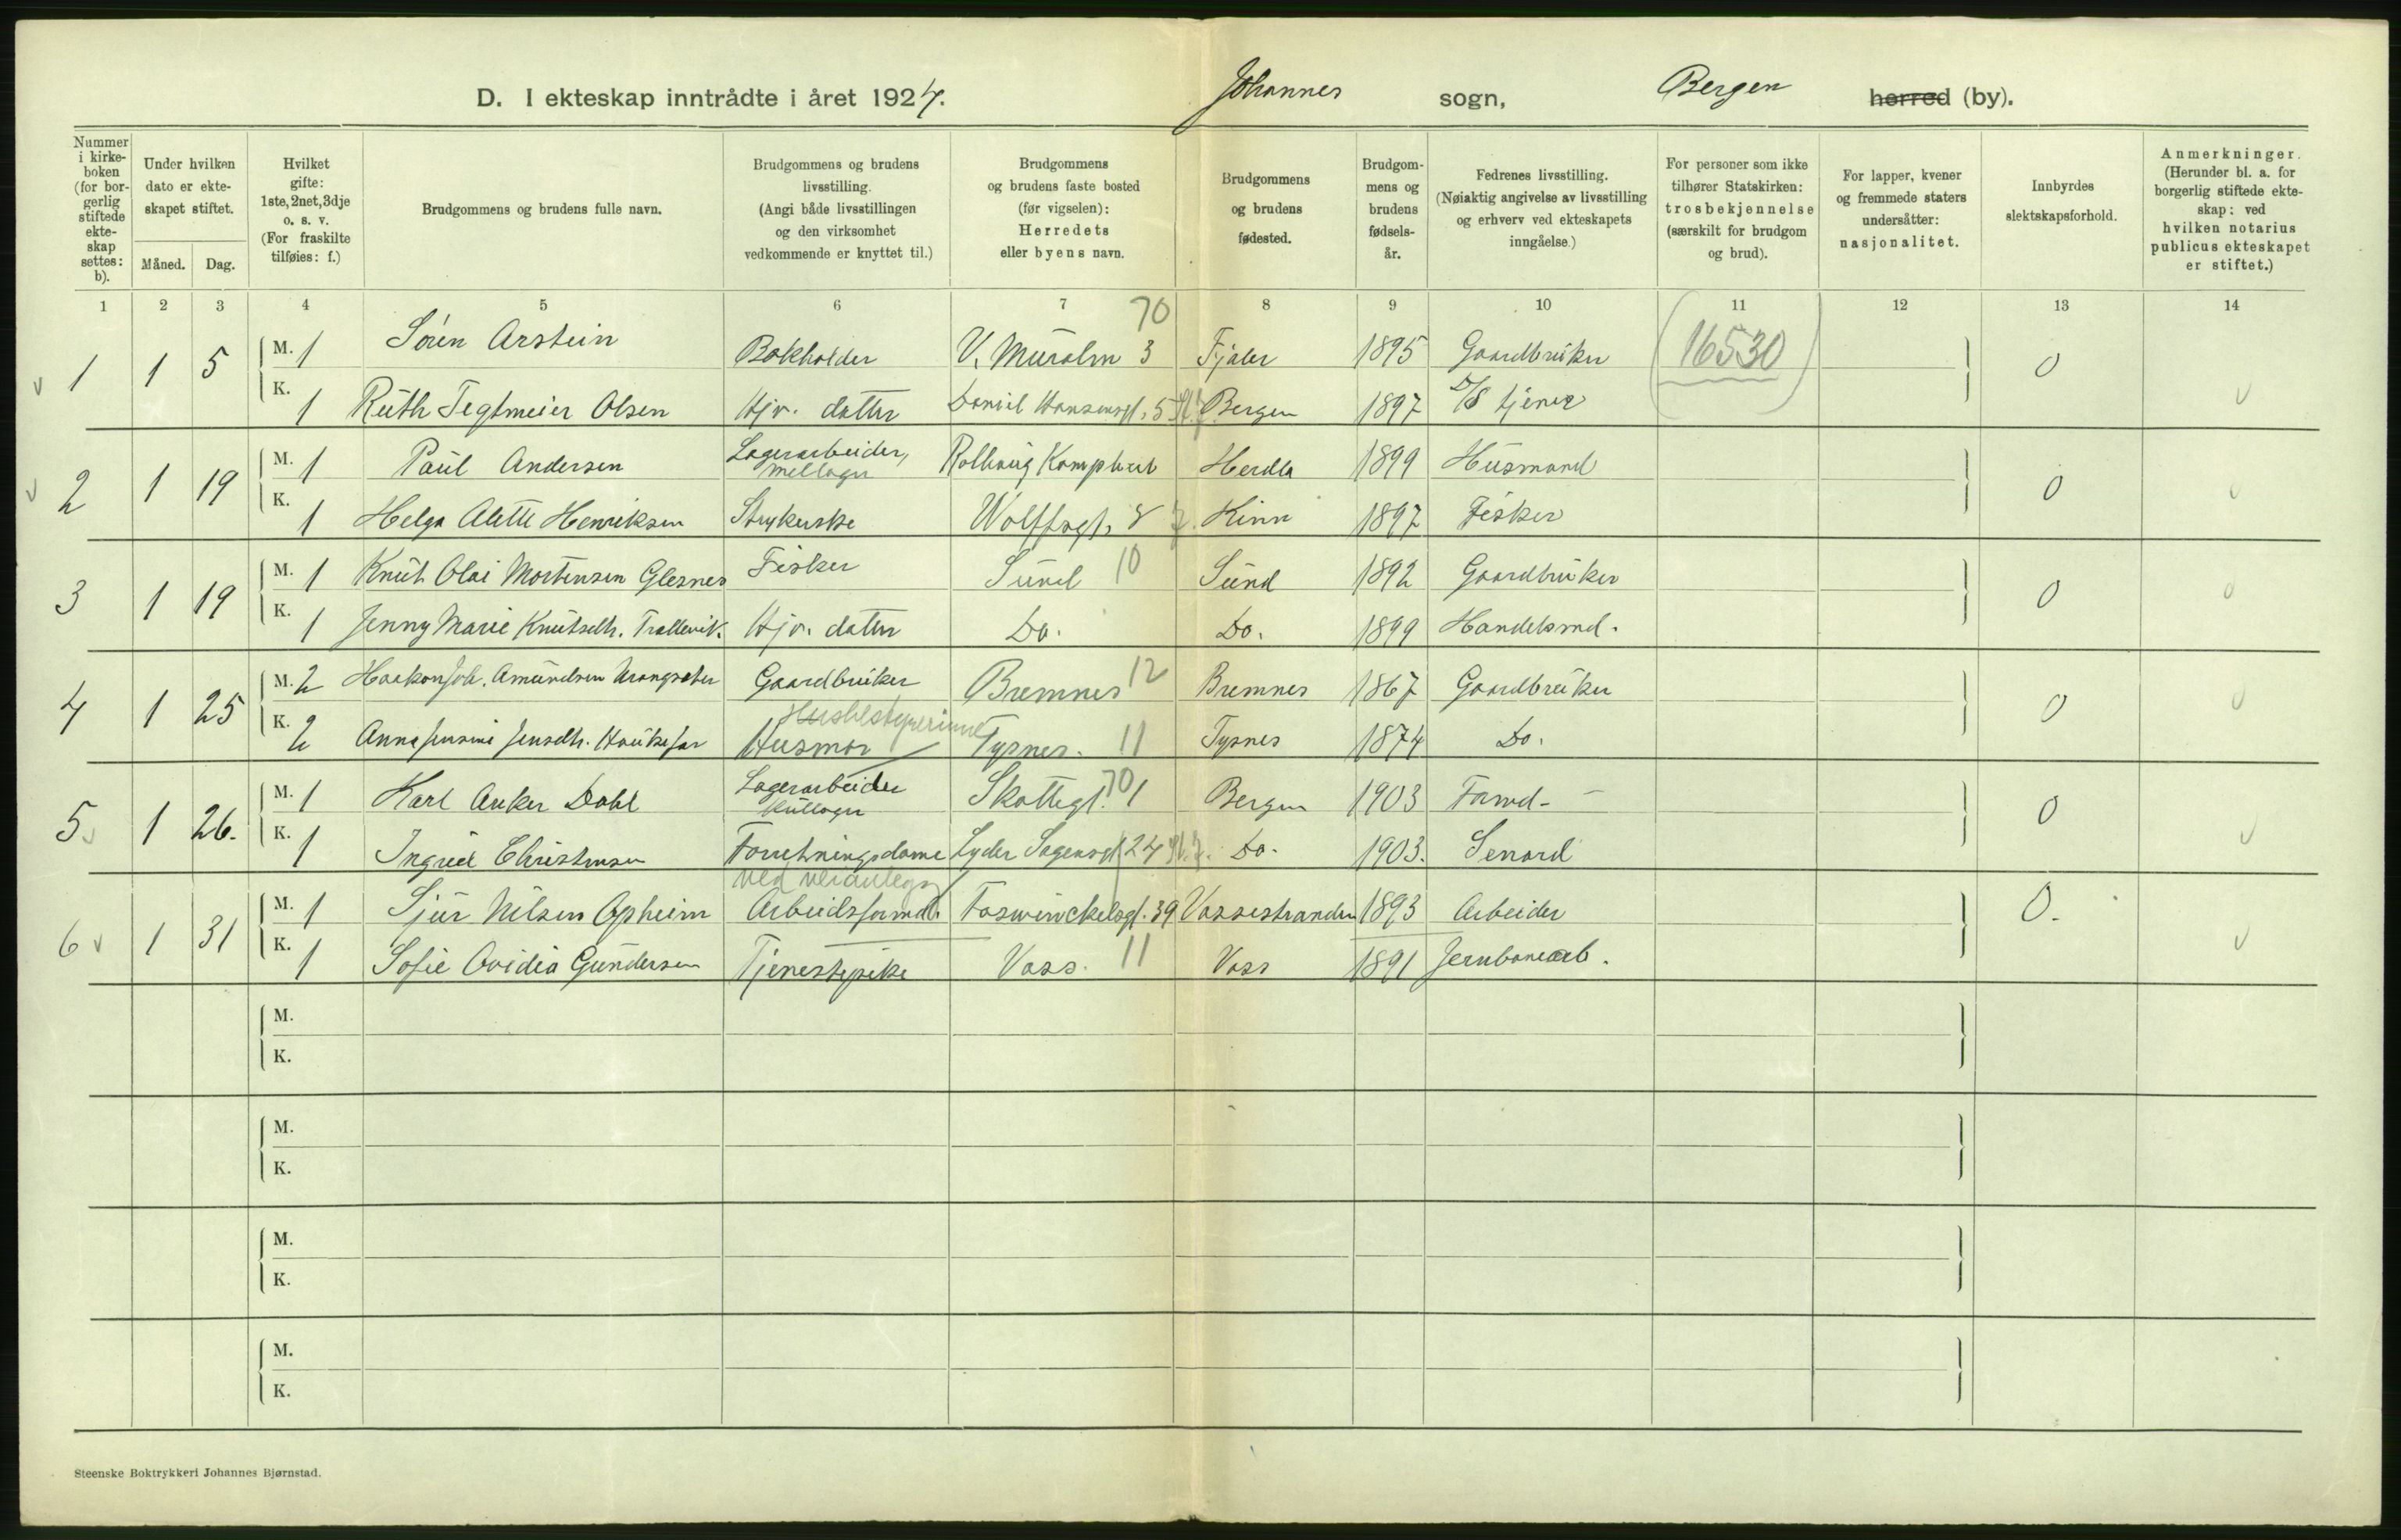 D. I ekteskap inntrådte i året 1924. Johannes sogn, Bergen herred (by).
Nummer i kirke-boken (for bor-gerlig stiftede ekte-skap settes: b).
Under hvilken dato er ekte-skapet stiftet.
Måned. Dag.
Hvilket gifte: 1ste, 2net, 3dje o. s. v. (For fraskilte tilføies: f.)
Brudgommens og brudens fulle navn.
Brudgommens og brudens livsstilling. (Angi både livsstillingen og den virksomhet vedkommende er knyttet til.)
Brudgommens og brudens faste bosted (før vigselen): Herredets eller byens navn.
Brudgommens og brudens fødested.
Brudgom-mens og brudens fødsels-år.
Fedrenes livsstilling. (Nøiaktig angivelse av livsstilling og erhverv ved ekteskapets inngåelse.)
For personer som ikke tilhører Statskirken: trosbekjennelse (særskilt for brudgom og brud).
For lapper, kvener og fremmede staters undersåtter: nasjonalitet.
Innbyrdes slektskapsforhold.
Anmerkninger. (Herunder bl. a. for borgerlig stiftede ekte-skap: ved hvilken notarius publicus ekteskapet er stiftet.)
1 2 3 4 5 6 7 8 9 10 11 12 13 14
70
1 1 5 M. 1 Søren Arstein Bokholder V. Muralm 3 Fjaler 1895 Gaardbruker 16530 0
K. 1 Ruth Tegtmeier Olsen Hjv. datter Daniel Hansensgt. 5 Bergen 1897 tjener
2 1 19 M. 1 Paul Andersen Lagerarbeider, mellager Rolhaug Kamphul Herdla 1899 Husmand 0
K. 1 Helga Alette Henriksen Strykerske Wolffsgt. 8 Kinn 1897 Fisker
3 1 19 M. 1 Knut Olai Mortensen Glesnes Fisker Sund 10 Sund 1892 Gaardbruker 0
K. 1 Jenny Marie Knutsdtr. Trallevik. Hjv. datter Do. Do. 1899 Handelsmd.
4 1 25 M. 2 Haakon Joh. Amundsen Vrangsæter Gaardbruker Bremnes 12 Bremnes 1867 Gaardbruker 0
Husbestyrerinne
K. 2 Anna Jensine Jensdtr. Haukefær Husmor Tysnes. 11 Tysnes 1874 Do.
5 1 26. M. 1 Karl Anker Dahl Lagerarbeider kullager Skottegt. 1 70 Bergen 1903 Formd. 0
K. 1 Ingrid Christensen Forretningsdame Lyder Sagensgt 24 Do. 1903.
ved veianlegg
6 1 31 M. 1 Sjur Nilsen Opheim Arbeidsformd. Foswinckelsgt. 39 Vossestranden 1893 Arbeider 0.
K. 1 Sofie Ovidia Gundersen Tjenestepike Voss. 11 Voss 1891 Jernbanearb.
M.
K.
M.
K.
M.
K.
M.
K.
Steenske Boktrykkeri Johannes Bjørnstad.